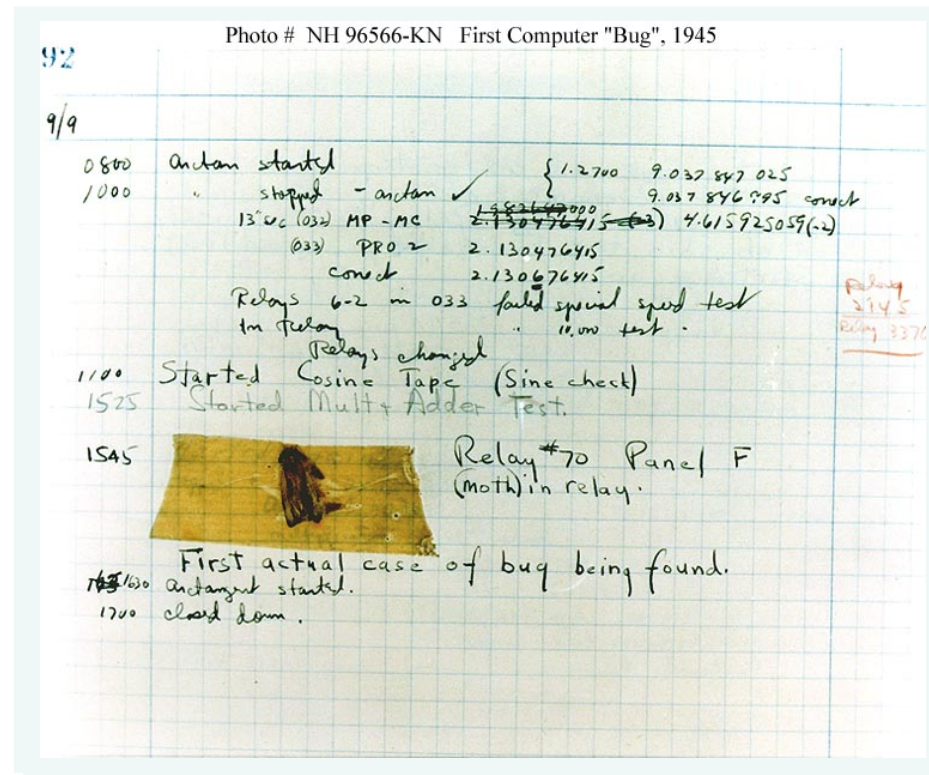 Photo # NH 96566-KN First Computer "Bug", 1945
92
9/9
0800 Antan started
1000 " stopped - antan ✓ { 1.2700 9.037 847 025
9.037 846 995 conect
13"uc (032) MP - MC 2.130476415 4.615925059(-2)
(033) PRO 2 2.130476415
conect 2.130676415
Relays 6-2 in 033 failed special speed test
In Relay " 10,000 test.
Relay
2145
Relay 3370
Relays changed
1100 Started Cosine Tape (Sine check)
1525 Started Mult+Adder Test.
1545 Relay #70 Panel F
(moth) in relay.
First actual case of bug being found.
1630 antangent started.
1700 closed down.